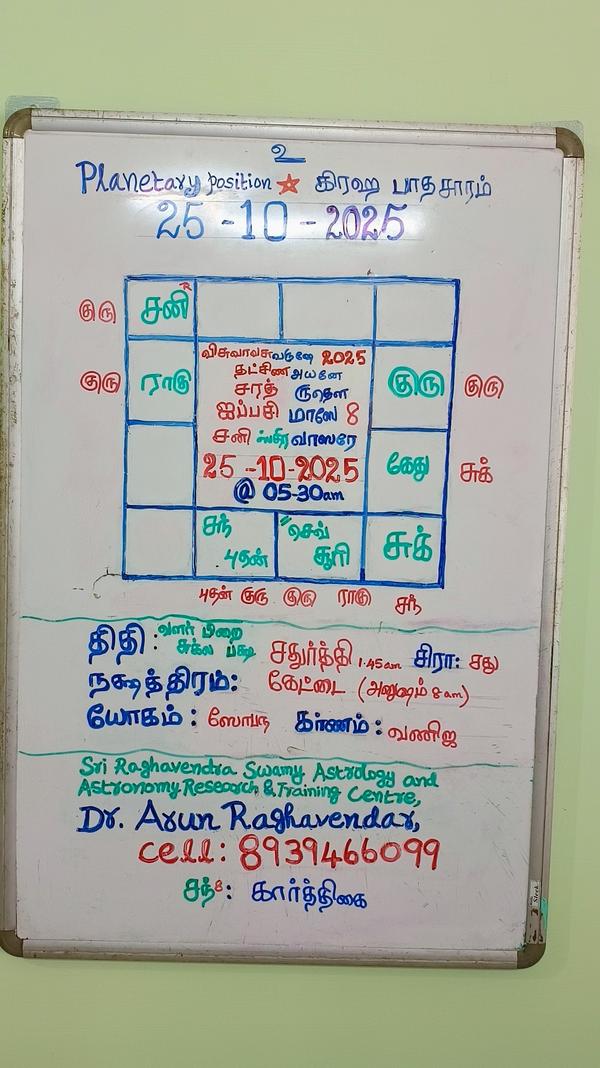 உ
Planetary position கிரஹ பாதசாரம்
25-10-2025
குரு சனி R
விசுவாவசு வருஷே 2025
தட்சிண அயனே
குரு ராகு குரு குரு
சரத் ருதௌ
ஐப்பசி மாஸே 8
சனி ஸ்திர வாஸரே
கேது சுக்
25-10-2025
@ 05-30am
சந் செவ் சுக்
புதன் சூரி
புதன் குரு குரு ராகு சந்
திதி : வளர் பிறை சுக்ல பக்ஷ சதுர்த்தி 1.45am சிரா: சது
நக்ஷத்திரம்: கேட்டை (அனுஷம் 8am)
யோகம் : ஸோபந கரணம் : வணிஜ
Sri Raghavendra Swamy Astrology and
Astronomy Research & Training Centre,
Dr. Arun Raghavendar,
cell: 8939466099
சந்8: கார்த்திகை